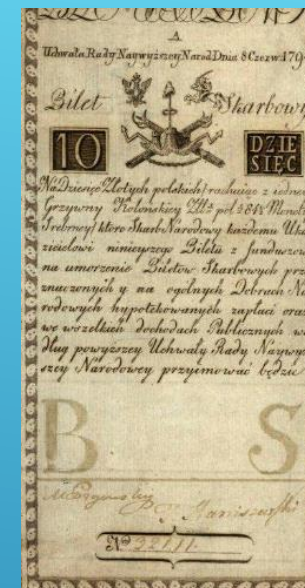 A
Uchwała Rady Naywyższey Narod: Dnia 8 Czerw. 179
Bilet Skarbowy
10 DZIE
SIĘC
Na Dziesięc Złotych polskich rachuiąc z iedney
Grzywny Kolonskiey Złł: pol: 84½ Monety
Srebrney ktore Skarb Narodowy każdemu Uka
zicielowi ninieyszego Biletu z funduszow
na umorzenie Biletów Skarbowych prze
znaczonych y na ogólnych Dobrach Na
rodowych hypotekowanych zapłaci oraz
we wszelkich dochodach Publicznych we
dług powyższey Uchwały Rady Naywyż
szey Narodowey przyimować będzie
B S
Janiszewski
No